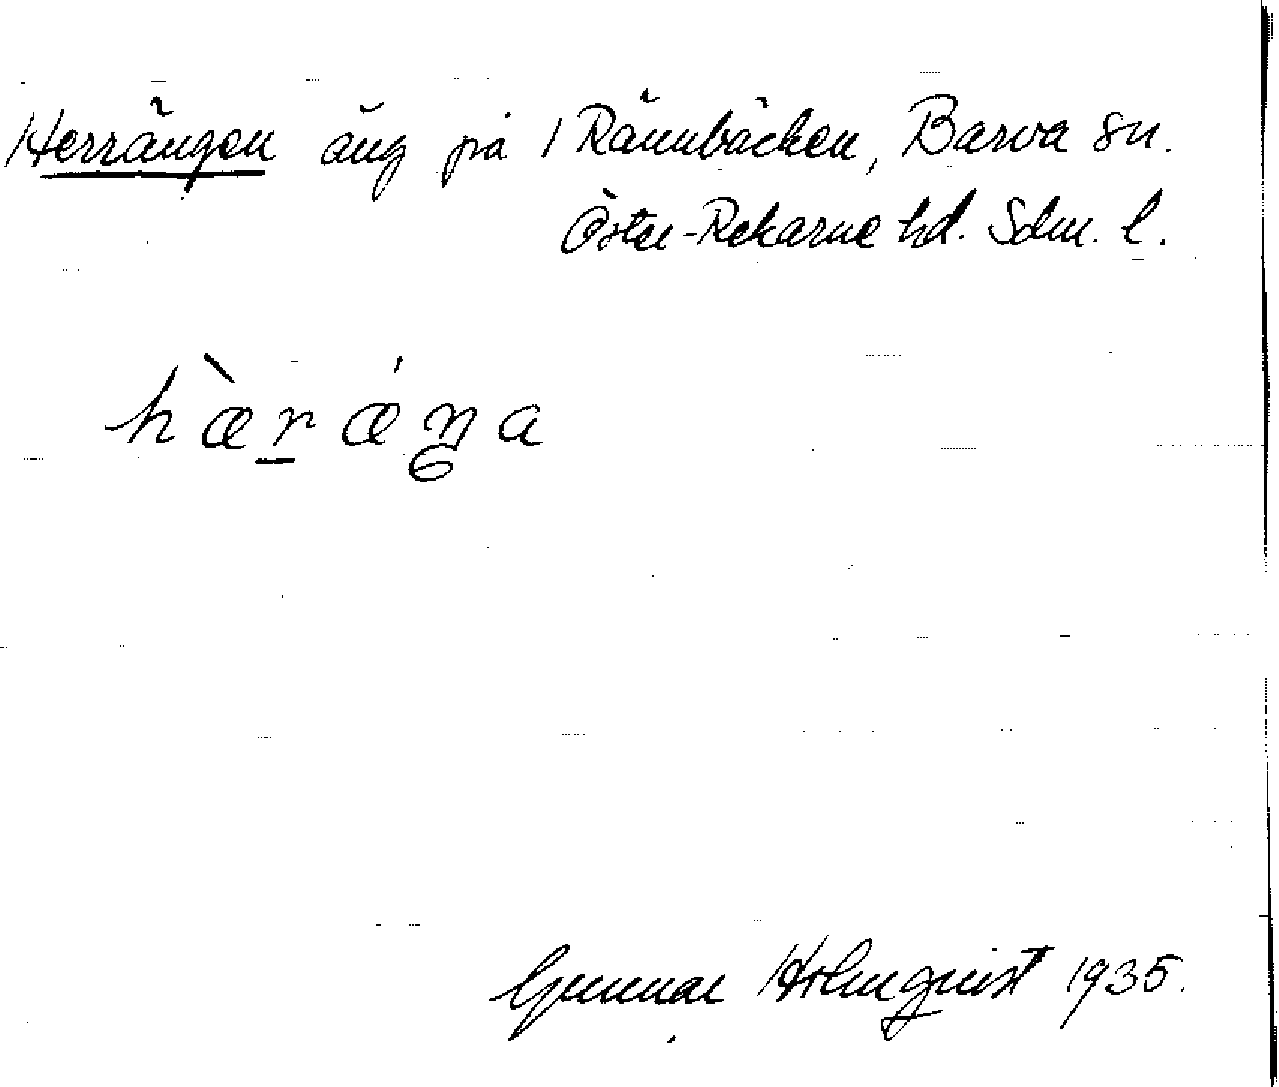 Herrängen äng på / Rännbäcken, Barva sn.
Öster-Rekarne hd. Sdm. l.
hæ̀ræ̍ŋa
Gunnar Holmquist 1935.